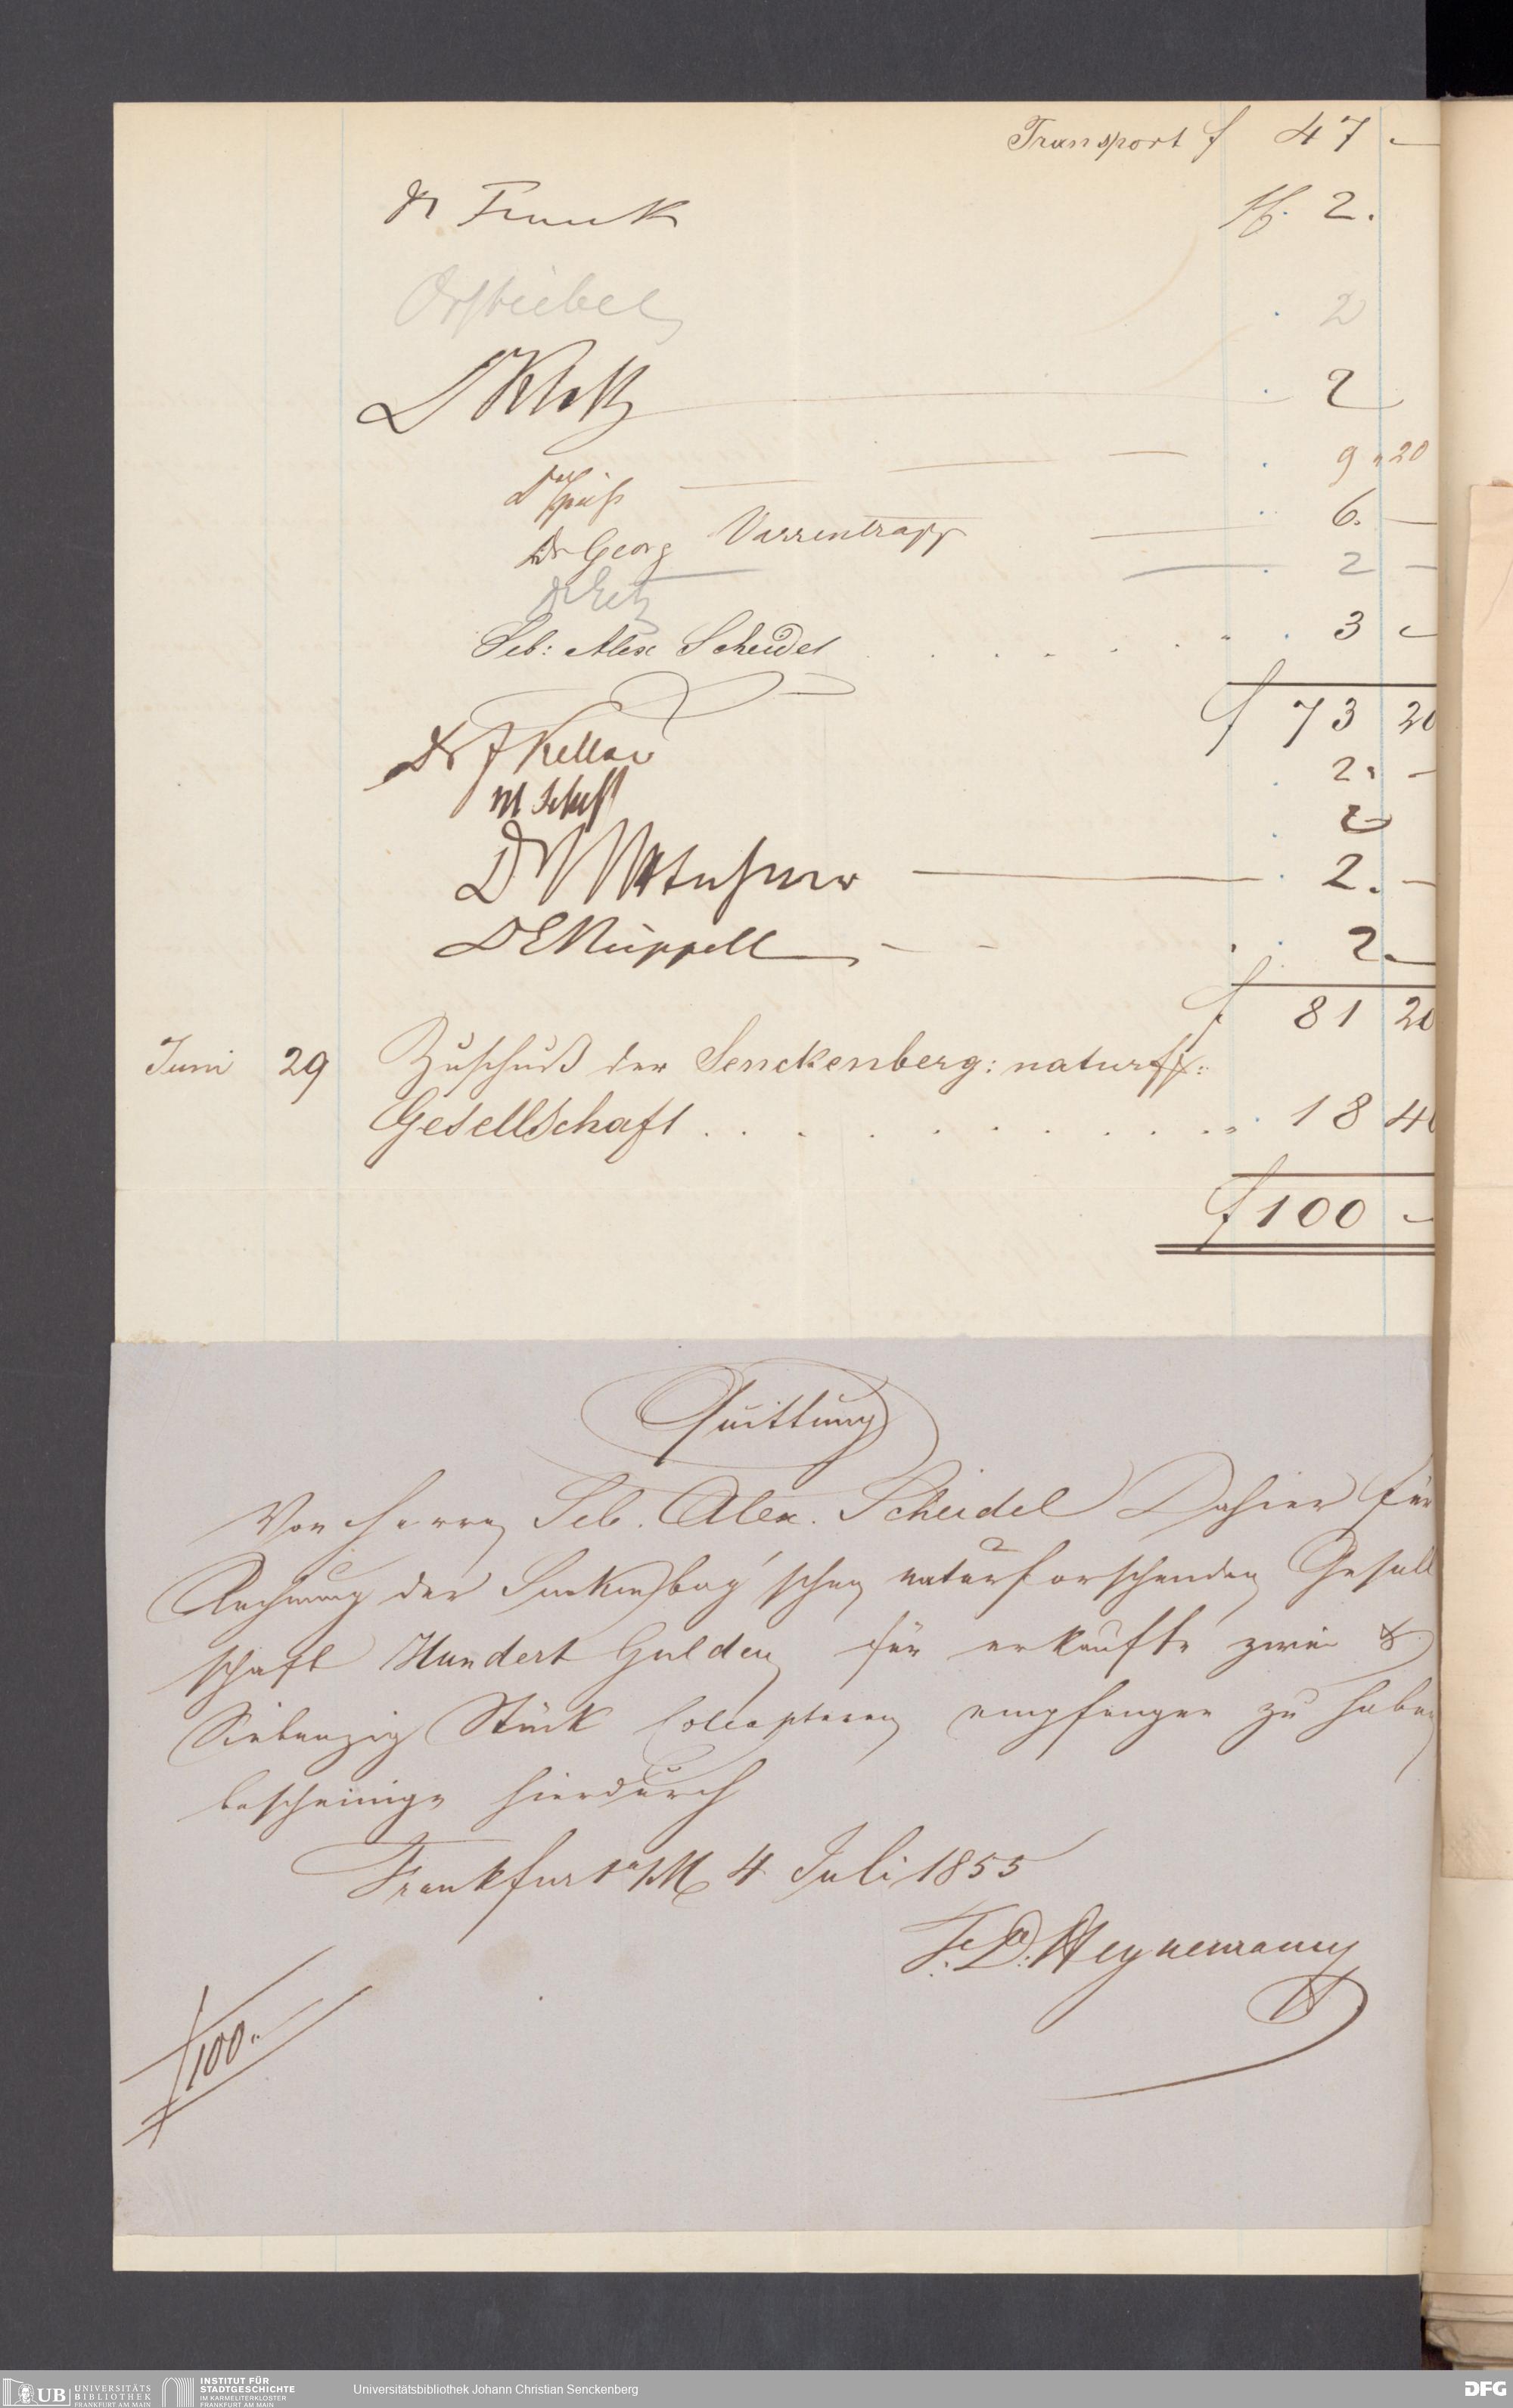 Transport f 47 —
Dr Funck f 2.
Dr Stiebel 2
Dr Kloß 2
Dr Spieß 9 " 20
Dr Georg Varrentrapp 6. —
2 —
Seb: Alex Scheidel 3 —
f 73 20
Dr F Keller 2. —
2
Dr 2. —
Dr E Rüppell 2. —
f 81 20
Juni 29 Zuschuß der Senckenberg: naturf:
Gesellschaft . . . . . . . . . . 18 40
f 100 —
Quittung
Von Herrn Seb. Alex. Scheidel Dahier für
Rechnung der Senkenberg'schen naturforschenden Gesell
schaft Hundert Gulden für erkaufte zwei &
Siebenzig Stück Coleopteren empfangen zu haben
bescheinige hierdurch
Frankfurt a/M 4 Juli 1855
F. D. Heynemann
f 100..
UB UNIVERSITÄTS
BIBLIOTHEK
FRANKFURT AM MAIN
INSTITUT FÜR
STADTGESCHICHTE
IM KARMELITERKLOSTER
FRANKFURT AM MAIN
Universitätsbibliothek Johann Christian Senckenberg
DFG